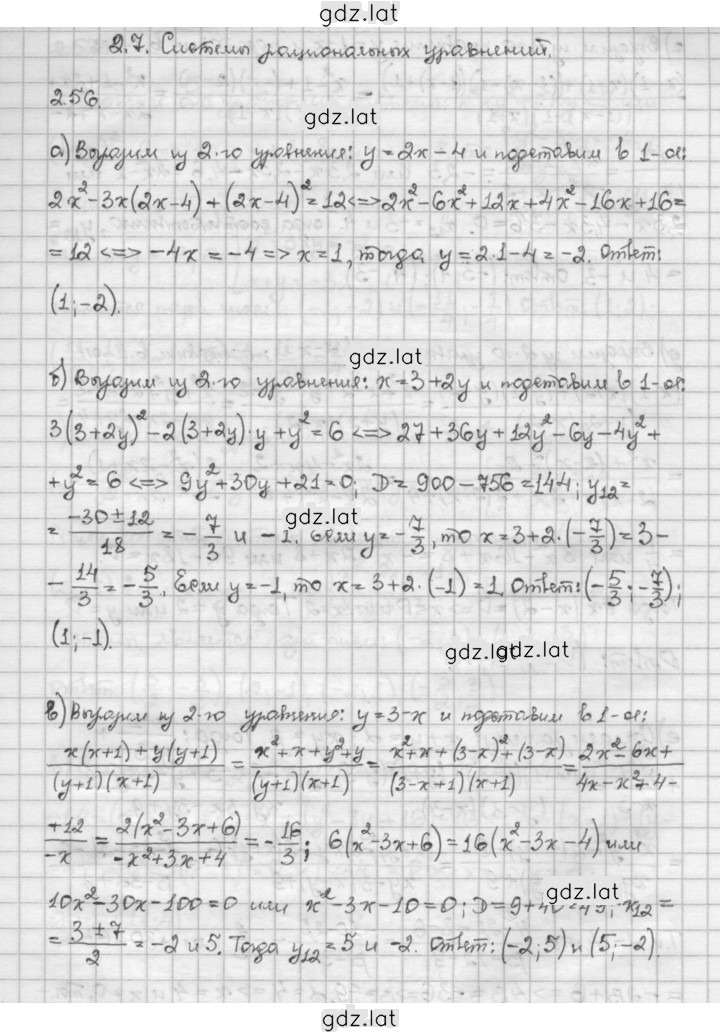 gdz.lat
2.7. Системы рациональных уравнений.
2.56.
gdz.lat
а) Выразим из 2-го уравнения: y = 2x − 4 и подставим в 1-ое:
2x² − 3x(2x−4) + (2x−4)² = 12 <=> 2x² − 6x² + 12x + 4x² − 16x + 16 =
= 12 <=> −4x = −4 => x = 1, тогда y = 2·1−4 = −2. Ответ:
gdz.lat
(1; −2).
gdz.lat
б) Выразим из 2-го уравнения: x = 3 + 2y и подставим в 1-ое:
3(3+2y)² − 2(3+2y)·y + y² = 6 <=> 27 + 36y + 12y² − 6y − 4y² +
+ y² = 6 <=> 9y² + 30y + 21 = 0; D = 900 − 756 = 144; y₁₂ =
gdz.lat
= (−30 ± 12)/18 = −7/3 и −1. Если y = −7/3, то x = 3 + 2·(−7/3) = 3 −
− 14/3 = −5/3. Если y = −1, то x = 3 + 2·(−1) = 1. Ответ: (−5/3; −7/3);
(1; −1).
gdz.lat gdz.lat
в) Выразим из 2-го уравнения: y = 3 − x и подставим в 1-ое:
gdz.lat
(x(x+1) + y(y+1))/((y+1)(x+1)) = (x² + x + y² + y)/((y+1)(x+1)) = (x² + x + (3−x)² + (3−x))/((3−x+1)(x+1)) = (2x² − 6x +)/(4x − x² + 4 −)
(+12)/(−x) = 2(x² − 3x + 6)/(−x² + 3x + 4) = −16/3; 6(x² − 3x + 6) = 16(x² − 3x − 4) или
gdz.lat
10x² − 30x − 100 = 0 или x² − 3x − 10 = 0; D = 9 + 40 = 49; x₁₂ =
= (3 ± 7)/2 = −2 и 5. Тогда y₁₂ = 5 и −2. Ответ: (−2; 5) и (5; −2).
gdz.lat
gdz.lat